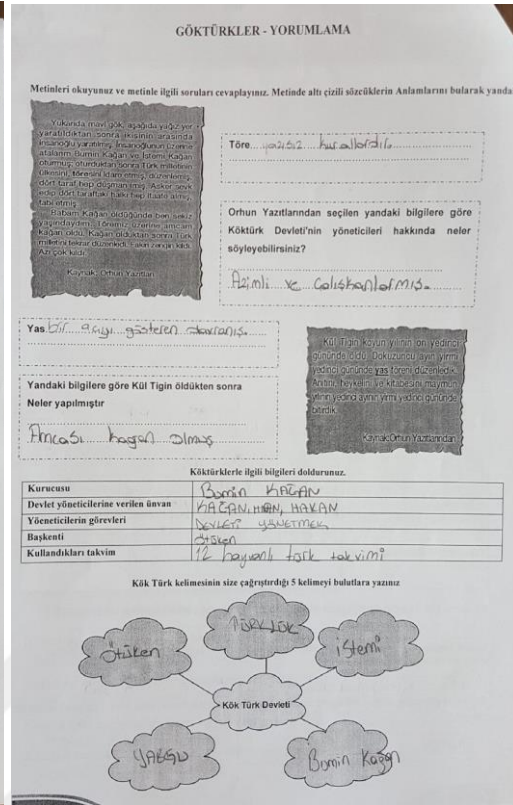 GÖKTÜRKLER - YORUMLAMA
Metinleri okuyunuz ve metinle ilgili soruları cevaplayınız. Metinde altı çizili sözcüklerin Anlamlarını bularak yanda
Yukarıda mavi gök, aşağıda yağız yer
yaratıldıktan sonra ikisinin arasında
insanoğlu yaratılmış. İnsanoğlunun üzerine
atalarım Bumin Kağan ve İstemi Kağan
oturmuş; oturduktan sonra Türk milletinin
ülkesini, töresini idare etmiş, düzenlemiş,
dört taraf hep düşman imiş. Asker sevk
edip dört taraftaki halkı hep itaate almış,
tabi etmiş.
Babam Kağan öldüğünde ben sekiz
yaşındaydım. Töremiz üzerine amcam
kağan oldu. Kağan olduktan sonra Türk
milletini tekrar düzenledi. Fakiri zengin kıldı.
Azı çok kıldı.
Kaynak: Orhun Yazıtları
Töre yazısız kurallardır.
Orhun Yazıtlarından seçilen yandaki bilgilere göre
Köktürk Devleti'nin yöneticileri hakkında neler
söyleyebilirsiniz?
Azimli ve çalışkanlarmış.
Yas bir acıyı gösteren davranış.
Yandaki bilgilere göre Kül Tigin öldükten sonra
Neler yapılmıştır
Amcası kagan olmuş
Kül Tigin koyun yılının on yedinci
gününde öldü. Dokuzuncu ayın yirmi
yedinci gününde yas töreni düzenledik.
Anıtını, heykelini ve kitabesini maymun
yılının yedinci ayının yirmi yedinci gününde
bitirdik.
Kaynak:Orhun Yazıtlarından
Köktürklerle ilgili bilgileri doldurunuz.
Kurucusu Bumin KAĞAN
Devlet yöneticilerine verilen ünvan KAĞAN, HAN, HAKAN
Yöeneticilerin görevleri DEVLETİ YÖNETMEK
Başkenti ötüken
Kullandıkları takvim 12 hayvanlı türk takvimi
Kök Türk kelimesinin size çağrıştırdığı 5 kelimeyi bulutlara yazınız
Ötüken
TÜRKLÜK
istemi
Kök Türk Devleti
YABGU
Bumin Kağan